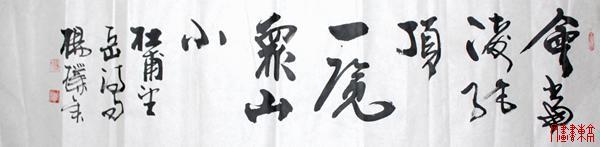 會當
凌絕
頂
一覽
眾山
小
杜甫望
岳詩句
楊